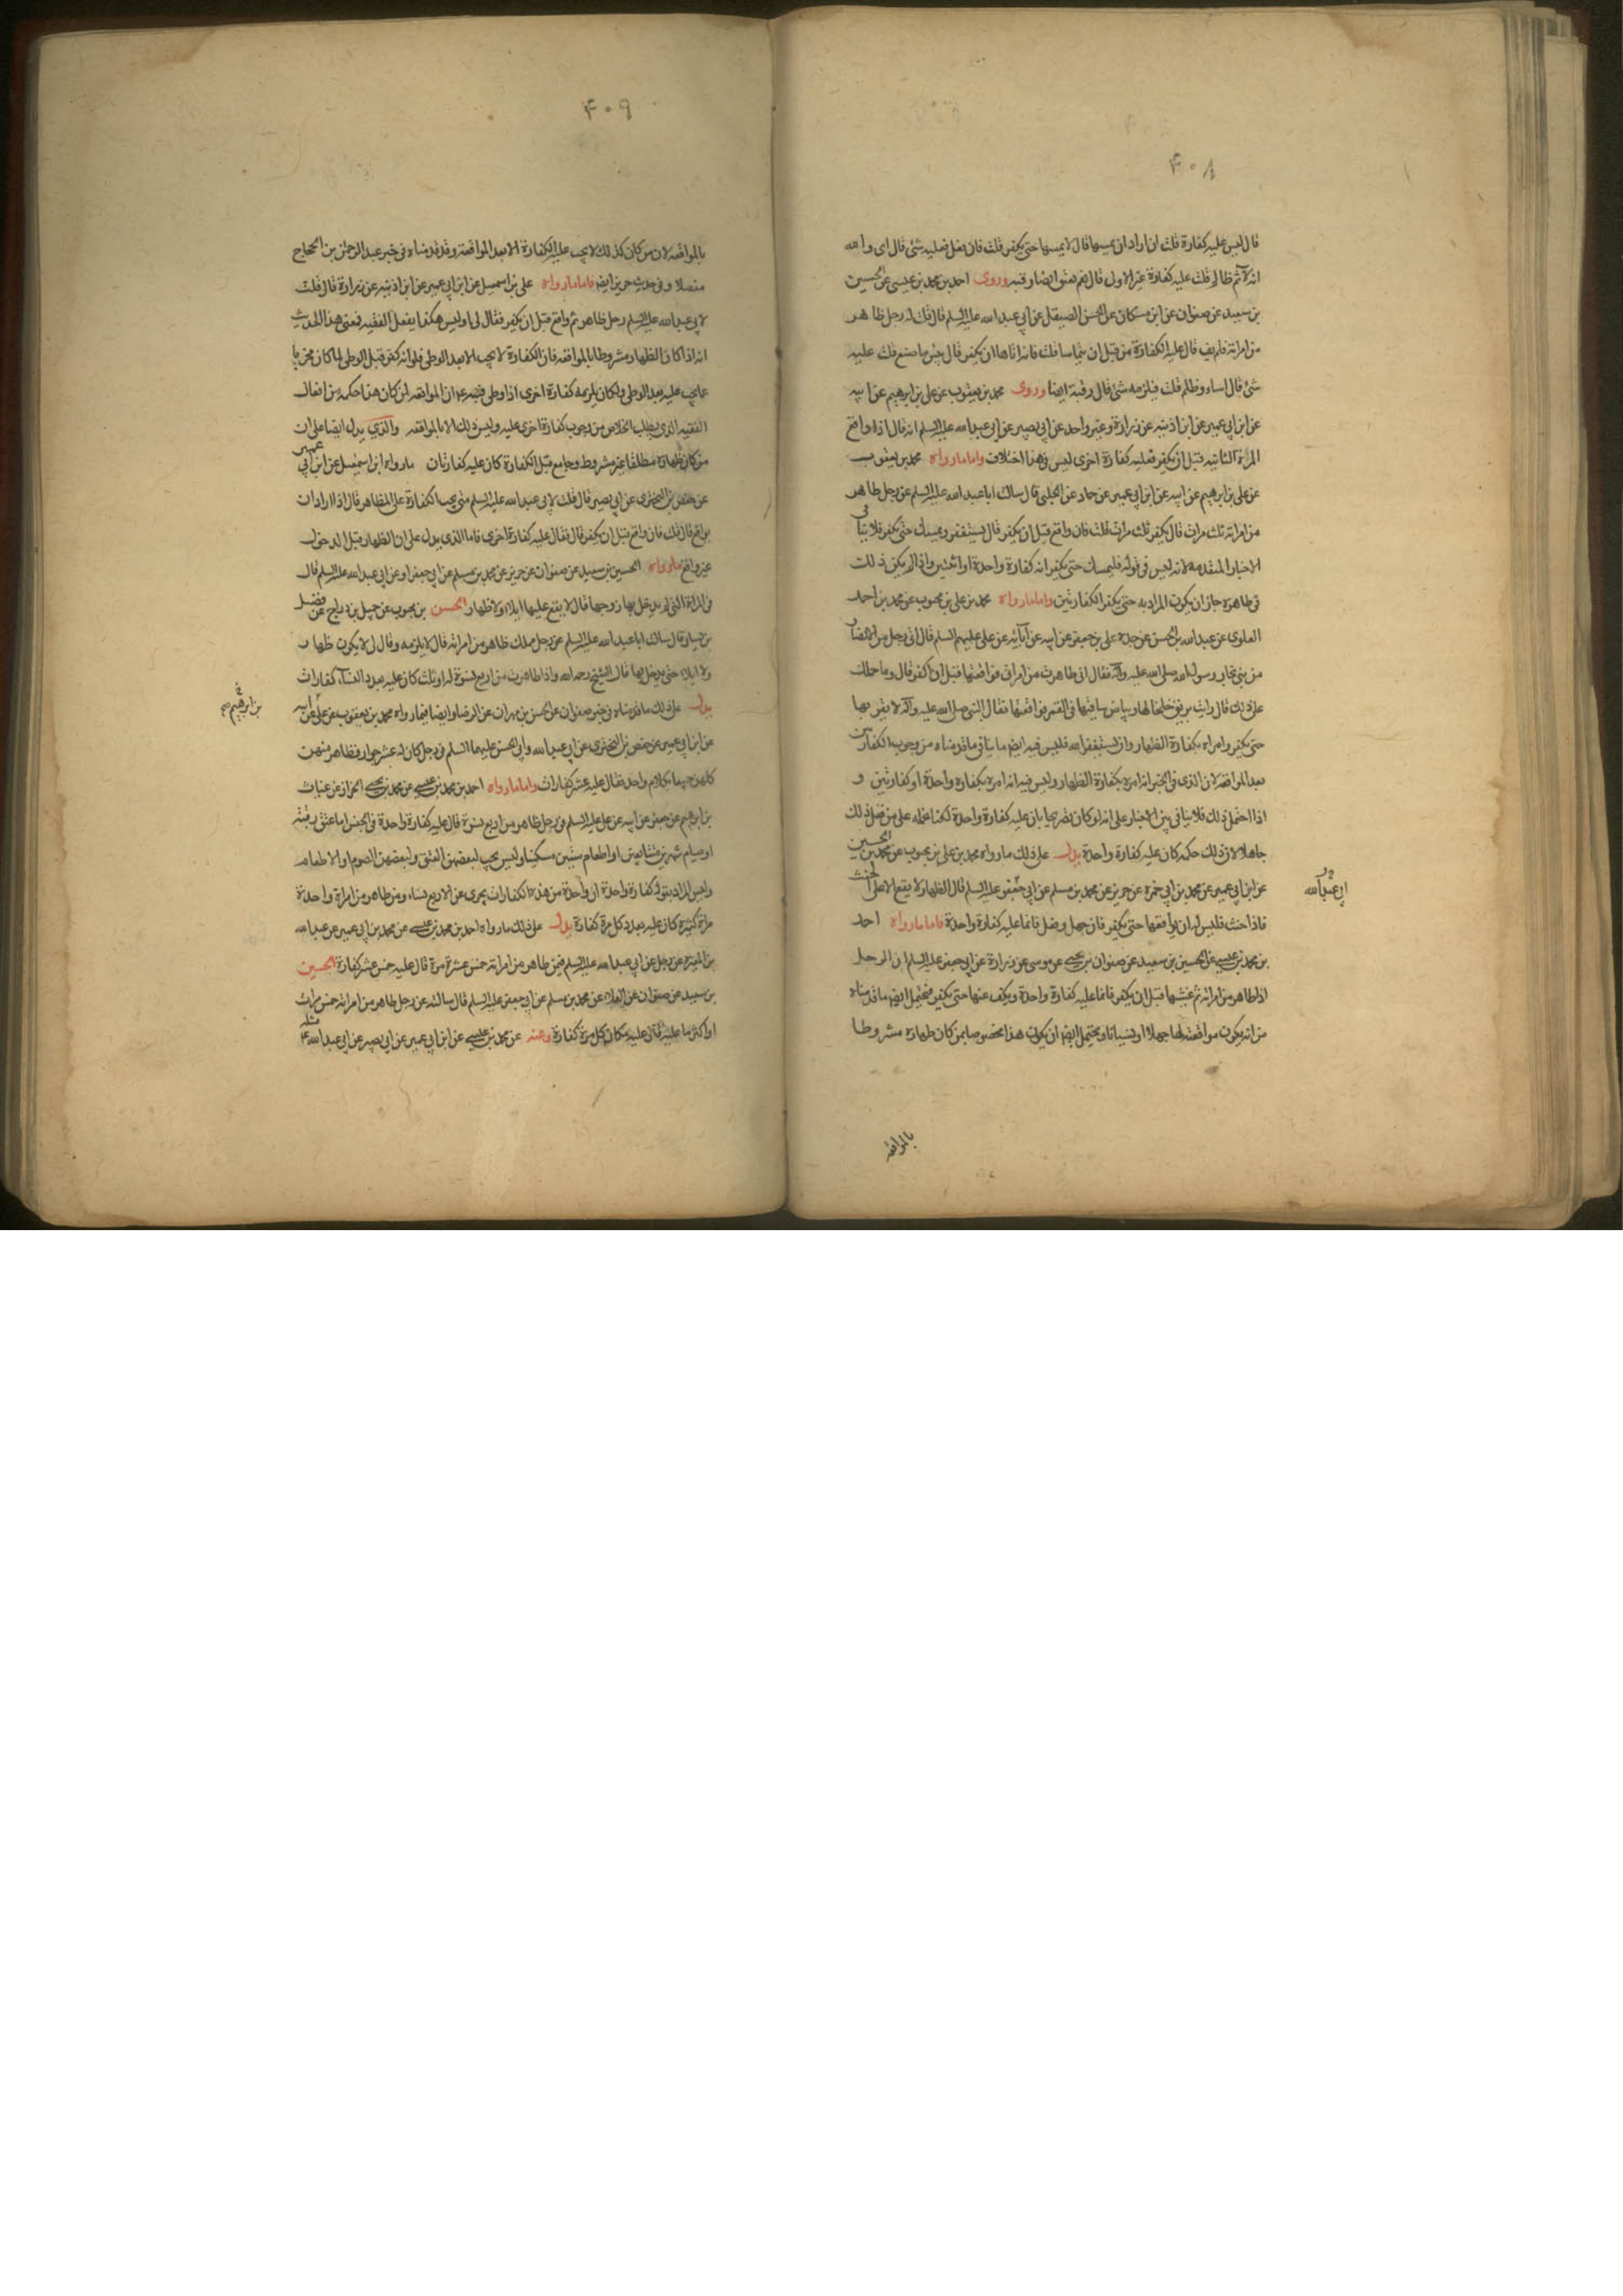 ۴۰۸
قال ليس عليه كفارة قلت ان اراد ان يمسها قال لا يمسها حتى يكفر قلت فان فعل فعليه شئ قال اى والله
انه لآثم ظالم قلت عليه كفارة غير الاول قال نعم يعتق ايضا رقبه وروى احمد بن محمد بن عيسى عن الحسين
بن سعيد عن صفوان عن ابن مسكان عن الحسن الصيقل عن ابي عبد الله عليه السلم قال قلت له رجل ظاهر
من امراته فلم يف قال عليه الكفارة من قبل ان يتماسا قلت فانه اتاها ان يكفر قال بئس ما صنع قلت عليه
شئ قال اساء وظلم قلت فيلزمه شئ قال رقبة ايضا وروى محمد بن يعقوب عن على بن ابرهيم عن ابيه
عن ابن ابي عمير عن ابن اذينه عن زرارة وغير واحد عن ابي بصير عن ابي عبد الله عليه السلم انه قال اذا واقع
المرة الثانيه قبل ان يكفر فعليه كفارة اخرى ليس فى هذا اختلاف واما ما رواه محمد بن يعقوب
عن على بن ابرهيم عن ابيه عن ابن ابي عمير عن حماد عن الحلبى قال سالت ابا عبد الله عليه السلم عن رجل ظاهر
من امراته ثلث مرات قال يكفر ثلث مرات قلت فان واقع قبل ان يكفر قال يستغفر ويمسك حتى يكفر فلا ينافى
الاخبار المتقدمه لانه ليس فى قوله فليمسك حتى يكفر انه كفارة واحدة او اثنتين واذا لم يكن ذلك
فى ظاهره جاز ان يكون المراد به حتى يكفر الكفارتين واما ما رواه محمد بن على بن محبوب عن محمد بن احمد
العلوى عن عبد الله بن الحسن عن جده على بن جعفر عن ابيه عن آبائه عن على عليهم السلم قال اتى رجل من الانصار
من بنى نجار رسول الله صلى الله عليه وآله فقال انى ظاهرت من امراتى فواقعتها قبل ان اكفر قال وما حملك
على ذلك قال رايت بريق خلخالها وبياض ساقيها فى القمر فواقعتها فقال النبى صلى الله عليه وآله لا تقربها
حتى تكفر وامراه بكفارة الظهار وان يستغفر الله فليس فيه ايضا ما ينافى ما قدمناه من وجوب الكفارتين
بعد المواقعه لان الذى فى الخبر انه امره بكفارة الظهار وليس فيه انه امره بكفارة واحدة او كفارتين و
اذا احتمل ذلك فلا ينافى بين الاخبار على انه لو كان تصريحا بان عليه كفارة واحدة لكنا نحمله على من فعل ذلك
جاهلا لان ذلك حكمه كان عليه كفارة واحدة يدل على ذلك ما رواه محمد بن على بن محبوب عن محمد بن الحسين
عن ابن ابي عمير عن محمد بن ابي حمزه عن حريز عن محمد بن مسلم عن ابي جعفر عليه السلم قال الظهار لا يقع الا على الحنث
ابى عبد الله
فاذا حنث فليس له ان يواقعها حتى يكفر فان جهل وفعل فانما عليه كفارة واحدة فاما ما رواه احمد
بن محمد بن عيسى عن الحسين بن سعيد عن صفوان بن يحيى عن موسى عن زرارة عن ابي جعفر عليه السلم ان الرجل
اذا ظاهر من امراته ثم غشيها قبل ان يكفر فانما عليه كفارة واحدة ويكف عنها حتى يكفر فيحتمل ايضا ما قدمناه
من انه يكون مواقعته لها جهلا او نسيانا ويحتمل ايضا ان يكون هذا مخصوصا بمن كان ظهاره مشروطا
بالمواقعه
۴۰۹
بالمواقعه لان من كان كذلك لا يجب عليه الكفارة الا بعد المواقعة وقد قدمناه فى خبر عبد الرحمن بن الحجاج
مفصلا وفى حديث حريز ايضا فاما ما رواه على بن اسمعيل عن ابن ابي عمير عن ابن اذينه عن زرارة قال قلت
لابى عبد الله عليه السلم رجل ظاهر ثم واقع قبل ان يكفر فقال لى اوليس هكذا يفعل الفقيه فمعنى هذا الحديث
انه اذا كان الظهار مشروطا بالمواقعه فان الكفارة لا يجب الا بعد الوطى فلو انه كفر قبل الوطى لما كان مجزيا
عما يجب عليه بعد الوطى ولكان يلزمه كفارة اخرى اذا وطى فنبه عم ان المواقعه لمن كان هذا حكمه من افعال
الفقيه الذى يطلب الخلاص من وجوب كفارة اخرى عليه وليس ذلك الا بالمواقعه والذى يدل ايضا على ان
من كان ظهاره مطلقا غير مشروط وجامع قبل الكفارة كان عليه كفارتان ما رواه ابن اسمعيل عن ابن ابي عمير
عن حفص بن البخترى عن ابي بصير قال قلت لابى عبد الله عليه السلم متى يجب الكفارة على المظاهر قال اذا اراد ان
يواقع قال قلت فان واقع قبل ان يكفر قال فقال عليه كفارة اخرى فاما الذى يدل على ان الظهار قبل الدخول
غير واقع ما رواه الحسين بن سعيد عن صفوان عن حريز عن محمد بن مسلم عن ابي جعفر او عن ابي عبد الله عليه السلم قال
فى المراة التى لم يدخل بها زوجها قال لا يقع عليها ايلاء ولا ظهار الحسن بن محبوب عن جميل بن دراج عن فضيل
بن يسار قال سالت ابا عبد الله عليه السلم عن رجل مملك ظاهر من امراته قال لا يلزمه وقال لى لا يكون ظهار
ولا ايلاء حتى يدخل بها قال الشيخ رحمه الله واذا ظاهر من اربع نسوة له او ثلث كان عليه بعدد النساء كفارات
يدل على ذلك ما قدمناه فى خبر صفوان عن الحسن بن مهران عن الرضا وايضا فيما رواه محمد بن يعقوب عن على عن ابيه
بن ابرهيم صح
عن ابن ابي عمير عن حفص بن البخترى عن ابي عبد الله وابي الحسن عليهما السلم فى رجل كان له عشر جوار فظاهر منهن
كلهن جميعا بكلام واحد فقال عليه عشر كفارات واما ما رواه احمد بن محمد بن عيسى عن محمد بن يحيى الخزاز عن غياث
بن ابرهيم عن جعفر عن ابيه عن على عليه السلم فى رجل ظاهر من اربع نسوة قال عليه كفارة واحدة فى الجنس اما عتق رقبة
او صيام شهرين متتابعين او اطعام ستين مسكينا وليس يجب لبعضهن العتق ولبعضهن الصوم او الاطعام
وليس المراد بقوله كفارة واحدة ان واحدة من هذه الكفارات يجزى عن الاربع نساء ومن ظاهر من امراة واحدة
مراة كثيرة كان عليه بعدد كل مرة كفارة يدل على ذلك ما رواه احمد بن محمد بن عيسى عن محمد بن ابي عمير عن عبد الله
بن المغيره عن رجل عن ابي عبد الله عليه السلم فيمن ظاهر من امراته خمس عشرة مرة قال عليه خمس عشر كفارة الحسين
بن سعيد عن صفوان عن العلاء عن محمد بن مسلم عن ابي جعفر عليه السلم قال سالته عن رجل ظاهر من امراته خمس مرات
او اكثر ما عليه قال عليه مكان كل مرة كفارة وعنه عن محمد بن عيسى عن ابن ابي عمير عن ابي بصير عن ابي عبد الله ع مثله